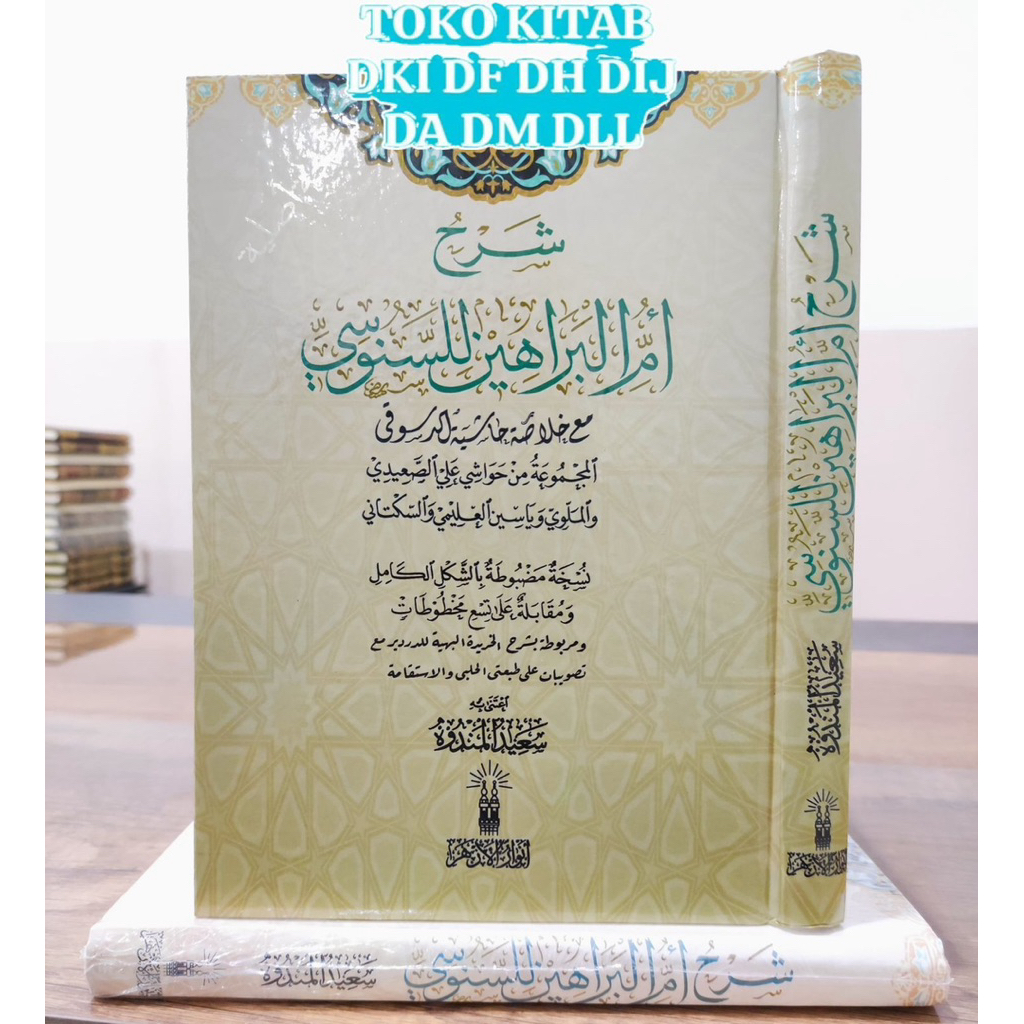 TOKO KITAB
DKI DF DH DIJ
DA DM DLL
شَرْحُ
أُمِّ الْبَرَاهِيْنِ لِلسَّنُوسِيِّ
مع خلاصة حاشية الدسوقي
الْمَجْمُوعَةُ مِنْ حَوَاشِي عَلِي الصَّعِيدِي
وَالْمَلَّوِي وَيَاسِين الْعُلَيْمِي وَالسُّكْتَانِي
نُسْخَةٌ مَضْبُوطَةٌ بِالشَّكْلِ الْكَامِلِ
وَمُقَابَلَةٌ عَلَى تِسْعِ مَخْطُوطَاتٍ
ومربوطة بشرح الخريدة البهية للدردير مع
تصويبات على طبعتي الحلبي والاستقامة
اعْتَنَى بِهِ
سَعِيد الْمَنْدُوه
أنوار الأزهر
شَرْحُ أُمِّ الْبَرَاهِيْنِ لِلسَّنُوسِيِّ
سَعِيد الْمَنْدُوه
أنوار الأزهر
شَرْحُ أُمِّ الْبَرَاهِيْنِ لِلسَّنُوسِيِّ
سَعِيد الْمَنْدُوه